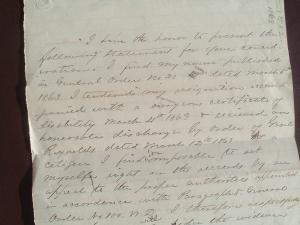 "I have the honor to present the
following statement for your consid
erations. I find my name published
in General Order No. 21 dated March
1863. I tendered my resignation accom
panied with a surgeons certificate of
disability March 4th 1863 & received an
honorable discharge by order of Genl
Reynolds dated March 12th 1863. As
citizen I find impossible to set
myself right on the records by an
appeal to the proper authorities
in accordance with Paragraph General
Order No. 100. W.D. I therefore respectfully
the evidence